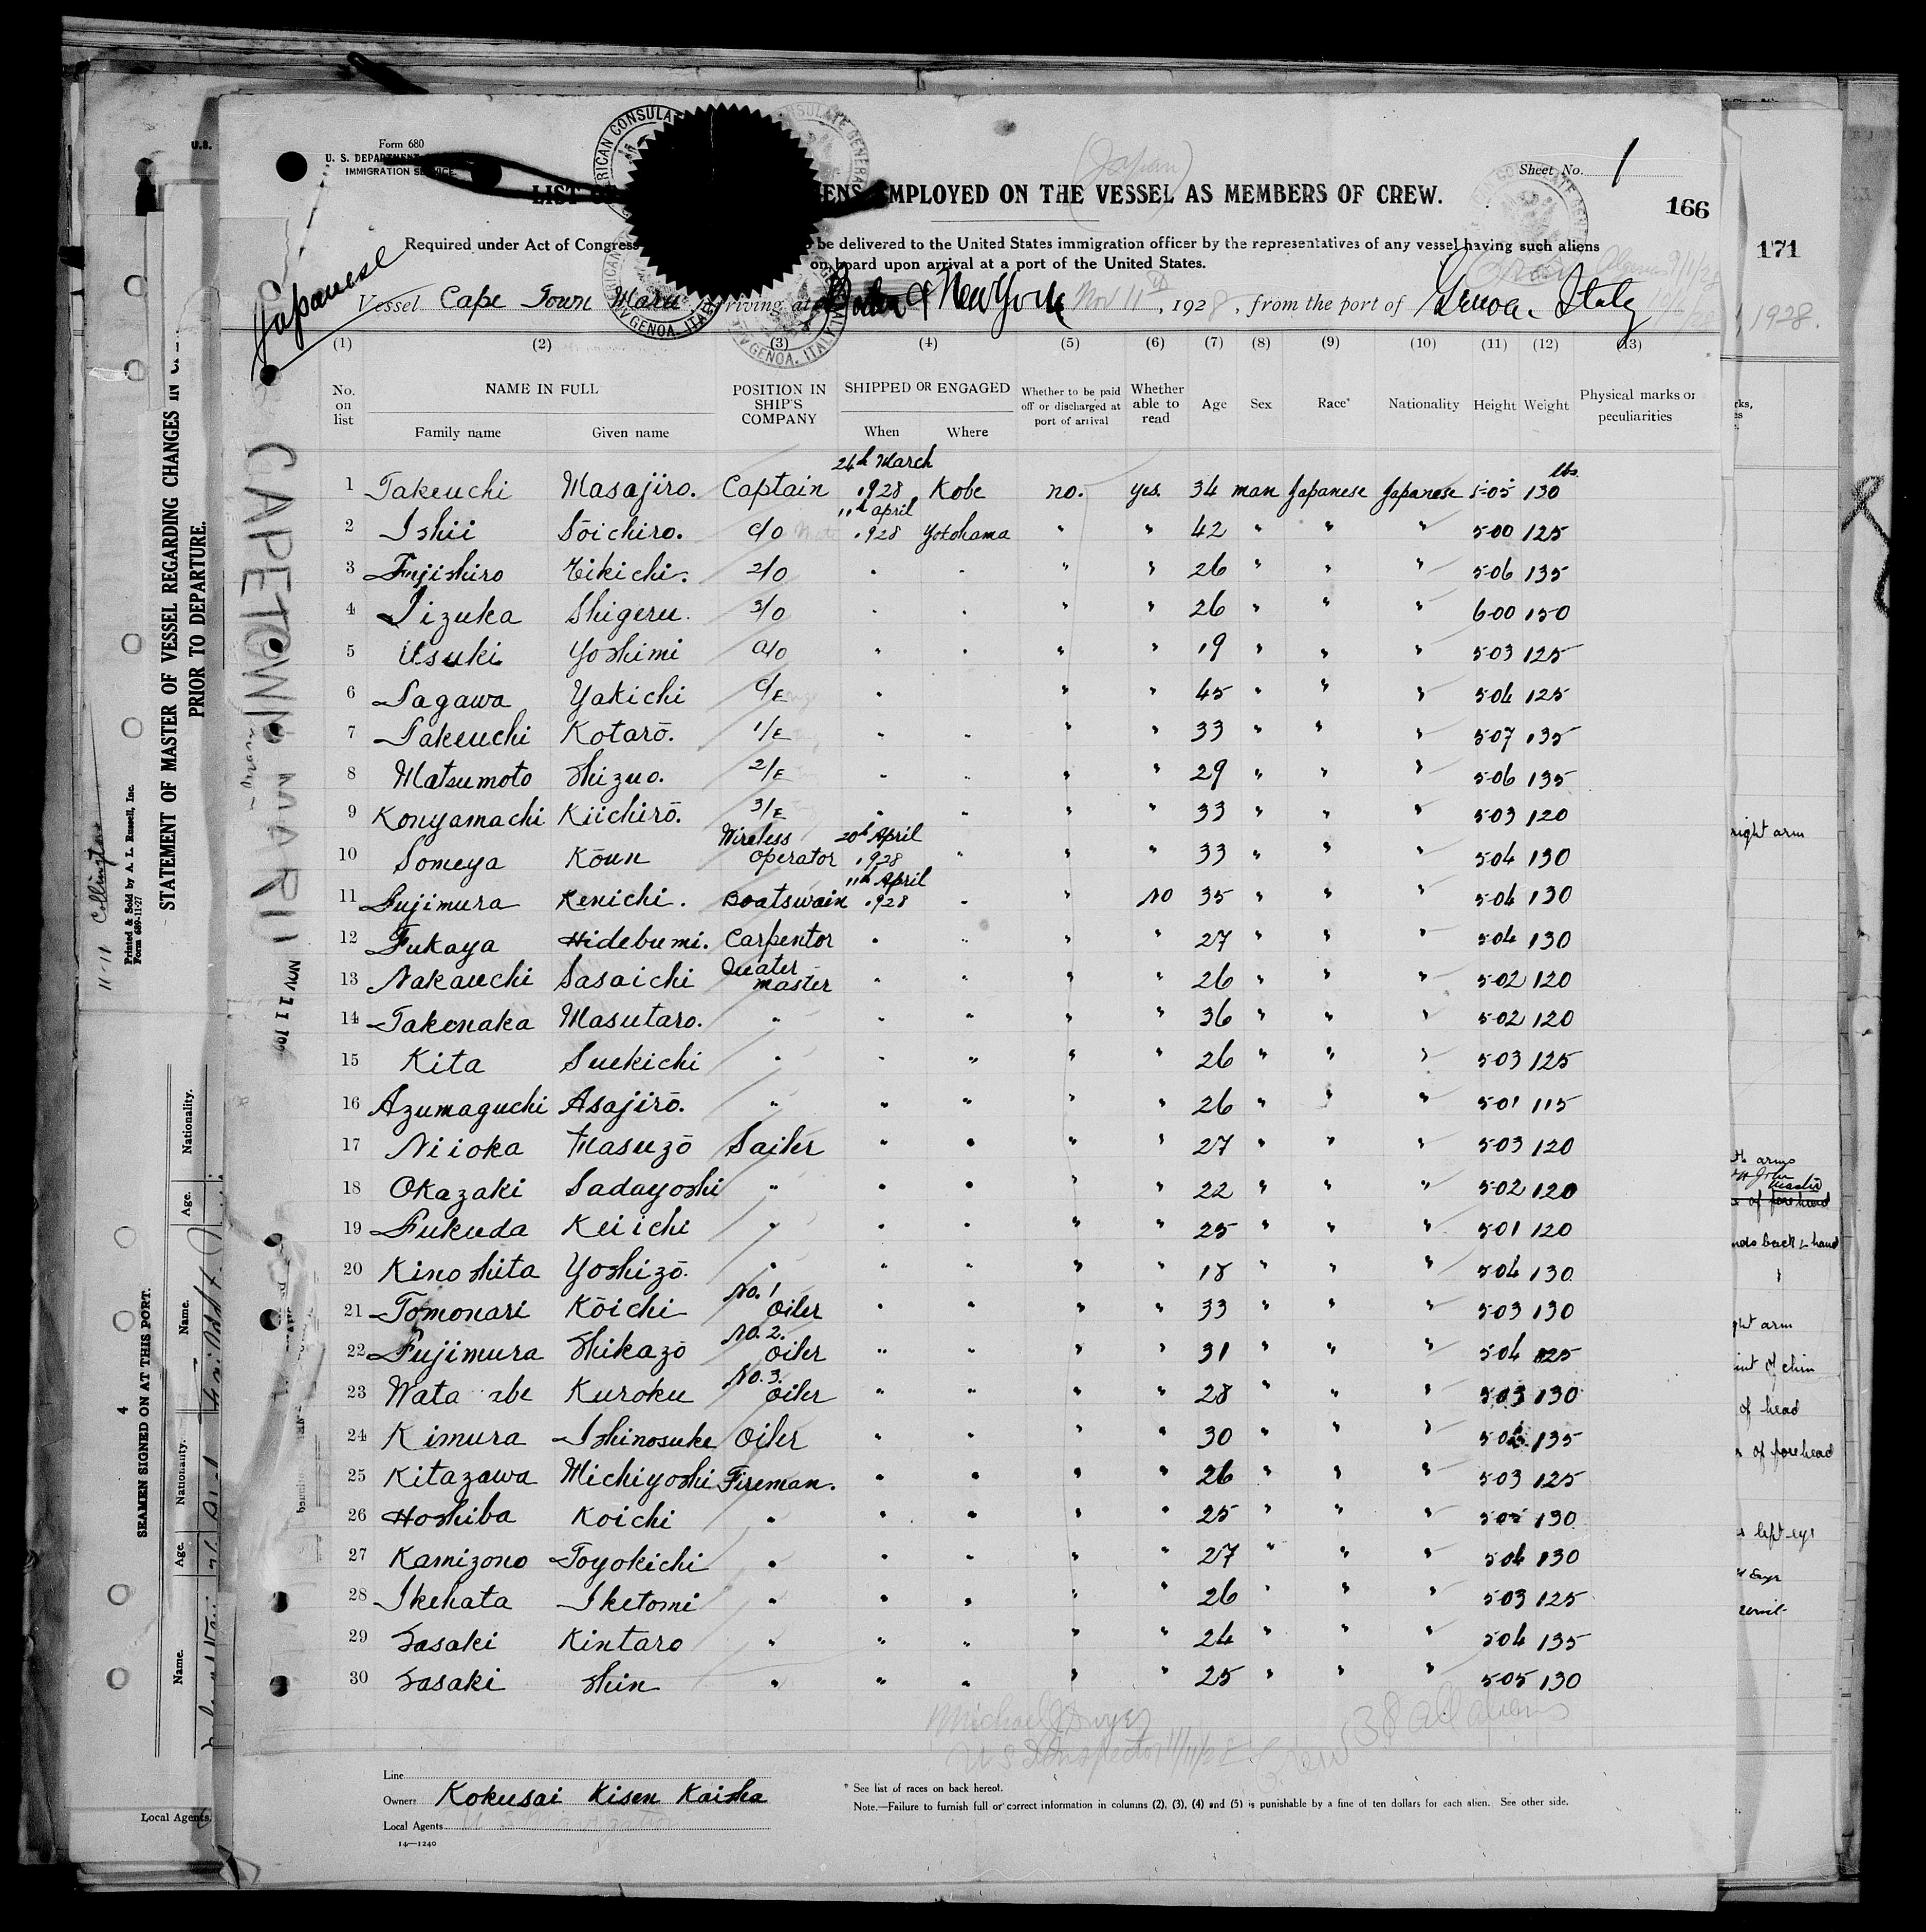 Form 680
U. S. DEPARTMENT
IMMIGRATION SERVICE
Sheet No. 1
(Japan)
LIST OF ALIENS EMPLOYED ON THE VESSEL AS MEMBERS OF CREW.
166
Required under Act of Congress be delivered to the United States immigration officer by the representatives of any vessel having such aliens
on board upon arrival at a port of the United States.
Japanese
Vessel Cape Town Maru arriving at New York Nov 11th, 1928, from the port of Genoa. Italy
(1) (2) (3) (4) (5) (6) (7) (8) (9) (10) (11) (12) (13)
No. on list NAME IN FULL Family name Given name POSITION IN SHIP'S COMPANY SHIPPED OR ENGAGED When Where Whether to be paid off or discharged at port of arrival Whether able to read Age Sex Race* Nationality Height Weight Physical marks or peculiarities
1 Takeuchi Masajiro. Captain 24th March 1928 Kobe no. yes. 34 man Japanese Japanese 5-05 130 lbs
2 Ishii Sōichiro. C/O 11th april 1928 Yokohama " " 42 " " " 5-00 125
3 Fujishiro Eikichi. 2/O " " " " 26 " " " 5-06 135
4 Iizuka Shigeru. 3/O " " " " 26 " " " 6-00 150
5 Usuki Yoshimi a/o " " " " 19 " " " 5-03 125
6 Sagawa Yakichi C/E " " " 45 " " " 5-04 125
7 Takeuchi Kotarō. 1/E " " " " 33 " " " 5-07 135
8 Matsumoto Shizuo. 2/E " " " " 29 " " " 5-06 135
9 Konyamachi Kiichirō. 3/E " " " " 33 " " " 5-03 120
10 Someya Kōun Wireless operator 20th April 1928 " " " 33 " " " 5-04 130
11 Fujimura Kenichi. Boatswain 11th April 1928 " " No 35 " " " 5-04 130
12 Fukaya Hidebumi. Carpentor " " " " 27 " " " 5-04 130
13 Nakauchi Sasaichi Quater master " " " " 26 " " " 5-02 120
14 Takenaka Masutaro. " " " " " 36 " " " 5-02 120
15 Kita Suekichi " " " " " 26 " " " 5-03 125
16 Azumaguchi Asajirō. " " " " " 26 " " " 5-01 115
17 Niioka Masuzō Sailer " " " " 27 " " " 5-03 120
18 Okazaki Sadayoshi " " " " " 22 " " " 5-02 120
19 Fukuda Keiichi " " " " " 25 " " " 5-01 120
20 Kinoshita Yoshizō. " " " " " 18 " " " 5-04 130
21 Tomonari Kōichi No. 1 Oiler " " " " 33 " " " 5-03 130
22 Fujimura Shikazō No. 2. Oiler " " " " 31 " " " 5-04 125
23 Wata abe Kuroku No. 3. Oiler " " " " 28 " " " 5-03 130
24 Kimura Ishinosuke Oiler " " " " 30 " " " 135
25 Kitazawa Michiyoshi Fireman. " " " " 26 " " " 5-03 125
26 Hoshiba Koichi " " " " " 25 " " " 5-05 130
27 Kamizono Toyokichi " " " " " 27 " " " 5-04 130
28 Ikehata Iketomi " " " " " 26 " " " 5-03 125
29 Sasaki Kintaro " " " " " 24 " " " 5-04 135
30 Sasaki Shin " " " " " 25 " " " 5-05 130
Michael J Dwyer
U S Inspector 11/11/28 Crew 38 all aliens
Line
Owners Kokusai Kisen Kaisha
Local Agents
14—1240
* See list of races on back hereof.
Note.—Failure to furnish full or correct information in columns (2), (3), (4) and (5) is punishable by a fine of ten dollars for each alien. See other side.
CAPETOWN MARU
NOV 11
AMERICAN CONSULATE GENERAL
GENOA, ITALY
11-11 Collington
Printed & Sold by A. L. Russell, Inc.
Form 689-11-27
STATEMENT OF MASTER OF VESSEL REGARDING CHANGES IN
PRIOR TO DEPARTURE.
4
SEAMEN SIGNED ON AT THIS PORT.
Name. Age. Nationality. Name. Age. Nationality.
Local Agents
U.S.
171
1928.
right arm
arms
of forehead
back hand
arm
of chin
of head
of forehead
left eye